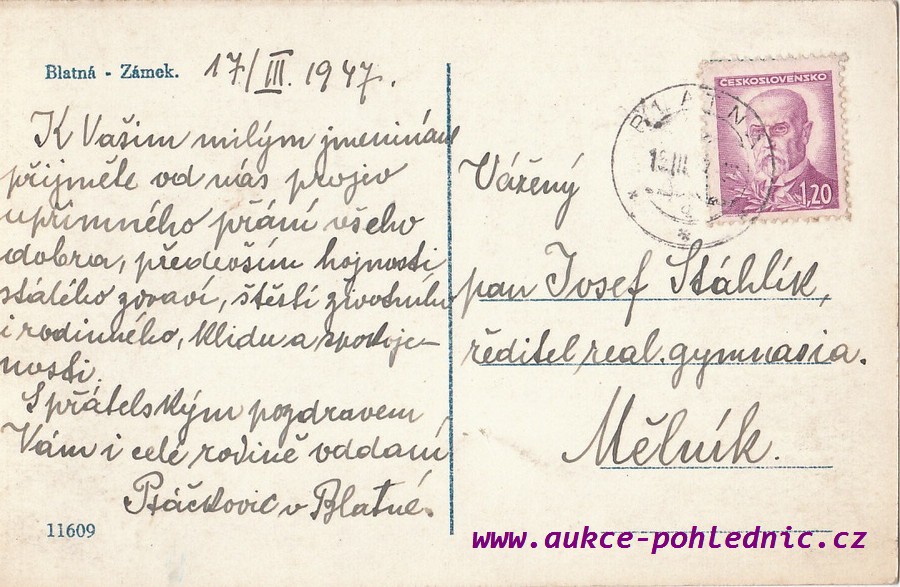 Blatná - Zámek.
17/III. 1947.
K Vašim milým jmeninám
přijměte od nás projev
upřímného přání všeho
dobra, především hojnosti
stálého zdraví, štěstí životního
i rodinného, klidu a spokoje-
nosti.
S přátelským pozdravem
Vám i celé rodině oddaní
Ptáčkovic v Blatné.
11609
ČESKOSLOVENSKO
1,20
BLATNÁ
Vážený
pan Josef Stáhlík,
ředitel real. gymnasia.
Mělník.
www.aukce-pohlednic.cz